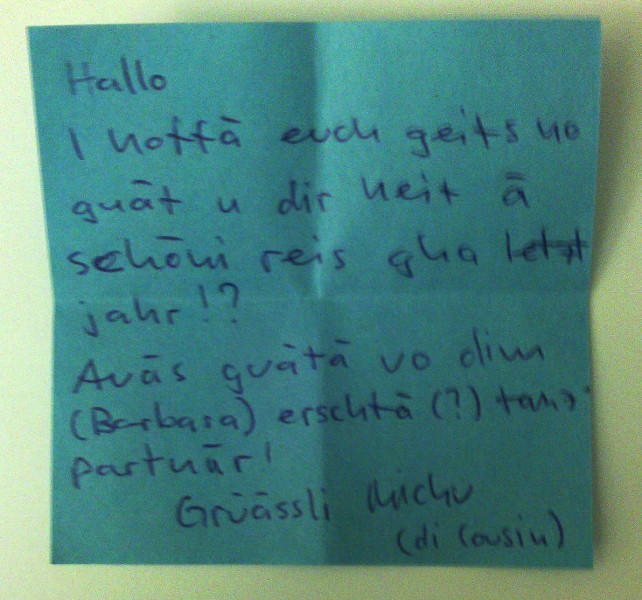 Hallo
I hoffä euch geits no
guät u dir heit ä
schöni reis gha letzt
jahr!?
Auäs guätä vo dim
(Barbara) erschtä (?) tanz
partnär!
Grüässli Michu
(di Cousin)